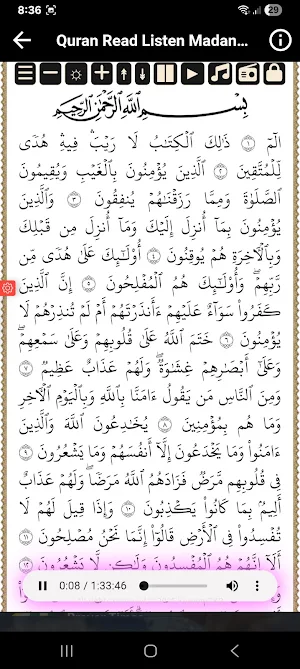 8:36
29
Quran Read Listen Madan...
بِسْمِ اللَّهِ الرَّحْمَٰنِ الرَّحِيمِ
الٓمٓ ١ ذَٰلِكَ الْكِتَابُ لَا رَيْبَ ۛ فِيهِ ۛ هُدًى
لِّلْمُتَّقِينَ ٢ الَّذِينَ يُؤْمِنُونَ بِالْغَيْبِ وَيُقِيمُونَ
الصَّلَوٰةَ وَمِمَّا رَزَقْنَاهُمْ يُنفِقُونَ ٣ وَالَّذِينَ
يُؤْمِنُونَ بِمَا أُنزِلَ إِلَيْكَ وَمَا أُنزِلَ مِن قَبْلِكَ
وَبِالْآخِرَةِ هُمْ يُوقِنُونَ ٤ أُولَٰئِكَ عَلَىٰ هُدًى مِّن
رَّبِّهِمْ ۖ وَأُولَٰئِكَ هُمُ الْمُفْلِحُونَ ٥ إِنَّ الَّذِينَ
كَفَرُوا سَوَاءٌ عَلَيْهِمْ ءَأَنذَرْتَهُمْ أَمْ لَمْ تُنذِرْهُمْ لَا
يُؤْمِنُونَ ٦ خَتَمَ اللَّهُ عَلَىٰ قُلُوبِهِمْ وَعَلَىٰ سَمْعِهِمْ ۖ
وَعَلَىٰ أَبْصَارِهِمْ غِشَاوَةٌ ۖ وَلَهُمْ عَذَابٌ عَظِيمٌ ٧
وَمِنَ النَّاسِ مَن يَقُولُ ءَامَنَّا بِاللَّهِ وَبِالْيَوْمِ الْآخِرِ
وَمَا هُم بِمُؤْمِنِينَ ٨ يُخَادِعُونَ اللَّهَ وَالَّذِينَ
ءَامَنُوا وَمَا يَخْدَعُونَ إِلَّا أَنفُسَهُمْ وَمَا يَشْعُرُونَ
٩ فِي قُلُوبِهِم مَّرَضٌ فَزَادَهُمُ اللَّهُ مَرَضًا ۖ وَلَهُمْ عَذَابٌ
أَلِيمٌ بِمَا كَانُوا يَكْذِبُونَ ١٠ وَإِذَا قِيلَ لَهُمْ لَا
تُفْسِدُوا فِي الْأَرْضِ قَالُوا إِنَّمَا نَحْنُ مُصْلِحُونَ ١١
أَلَا إِنَّهُمْ هُمُ الْمُفْسِدُونَ وَلَٰكِن لَّا يَشْعُرُونَ ١٢
0:08 / 1:33:46